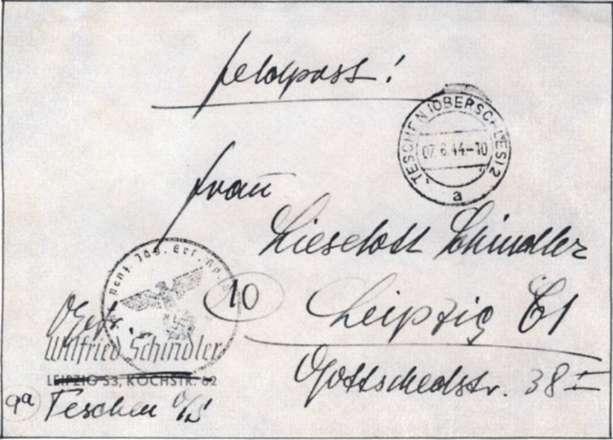 Feldpost!
TESCHEN (OBERSCHLES) 2
07.6.44-10
a
Frau
Lieselott Schindler
10
Leipzig C1
Gottschedstr. 38 I
Ogefr.
Wilfried Schindler
LEIPZIG S3, KOCHSTR. 62
9a
Teschen O/S